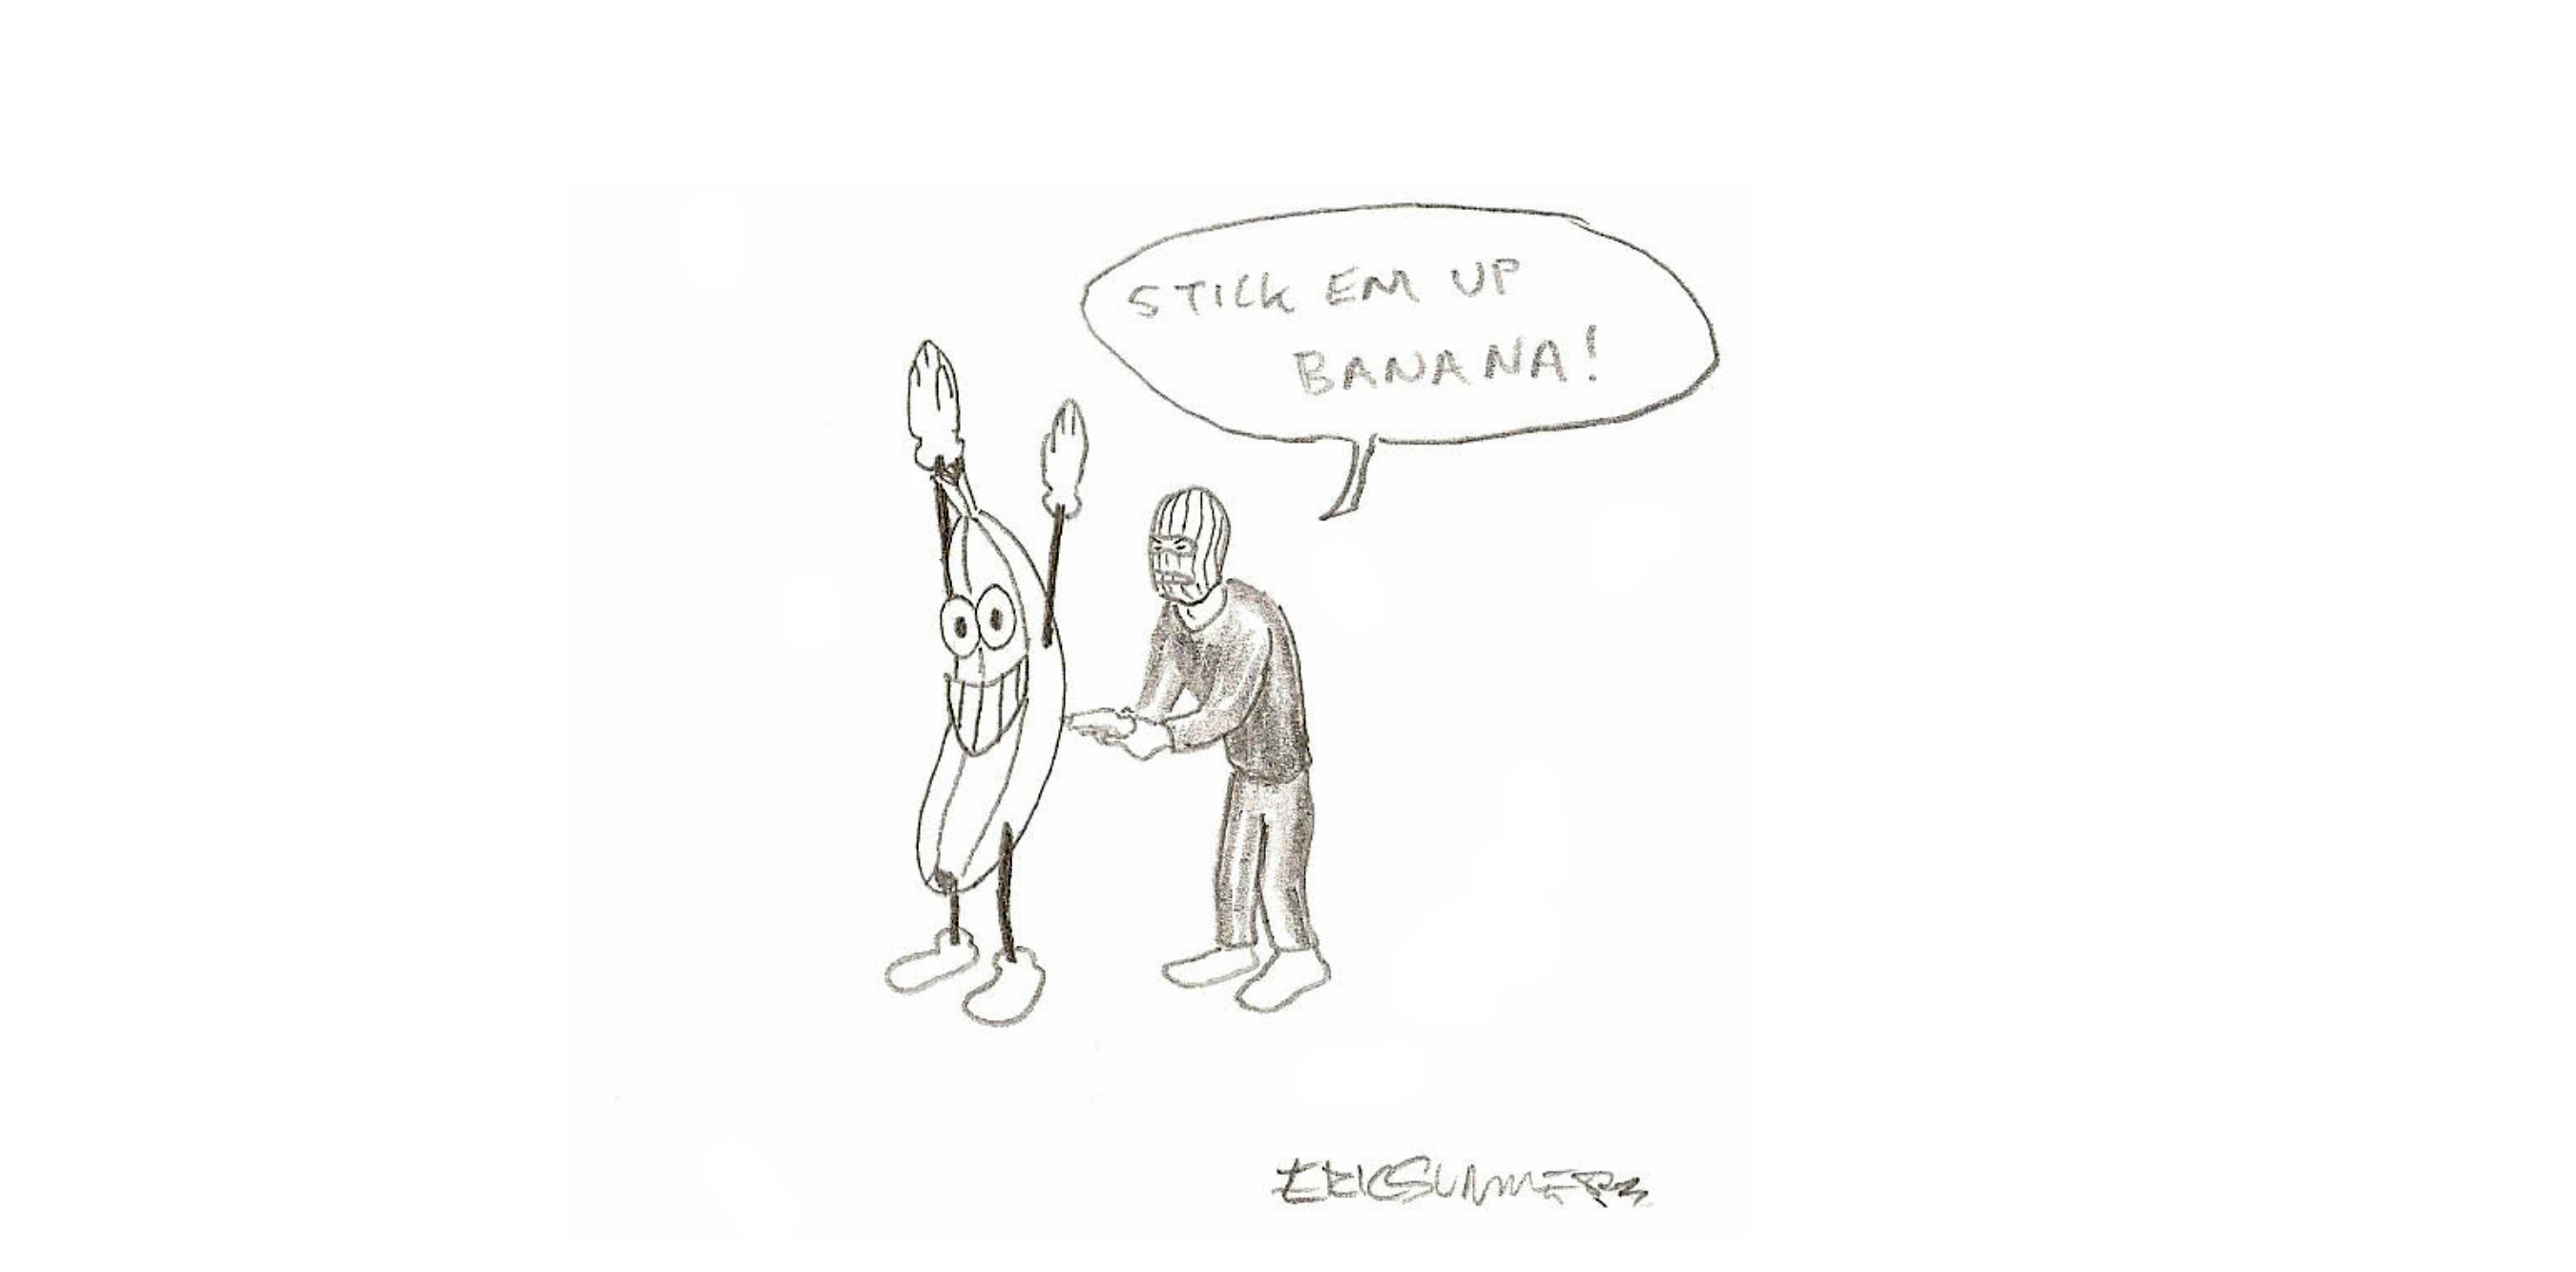 STICK EM UP
BANANA!
ERIC SUMMERS